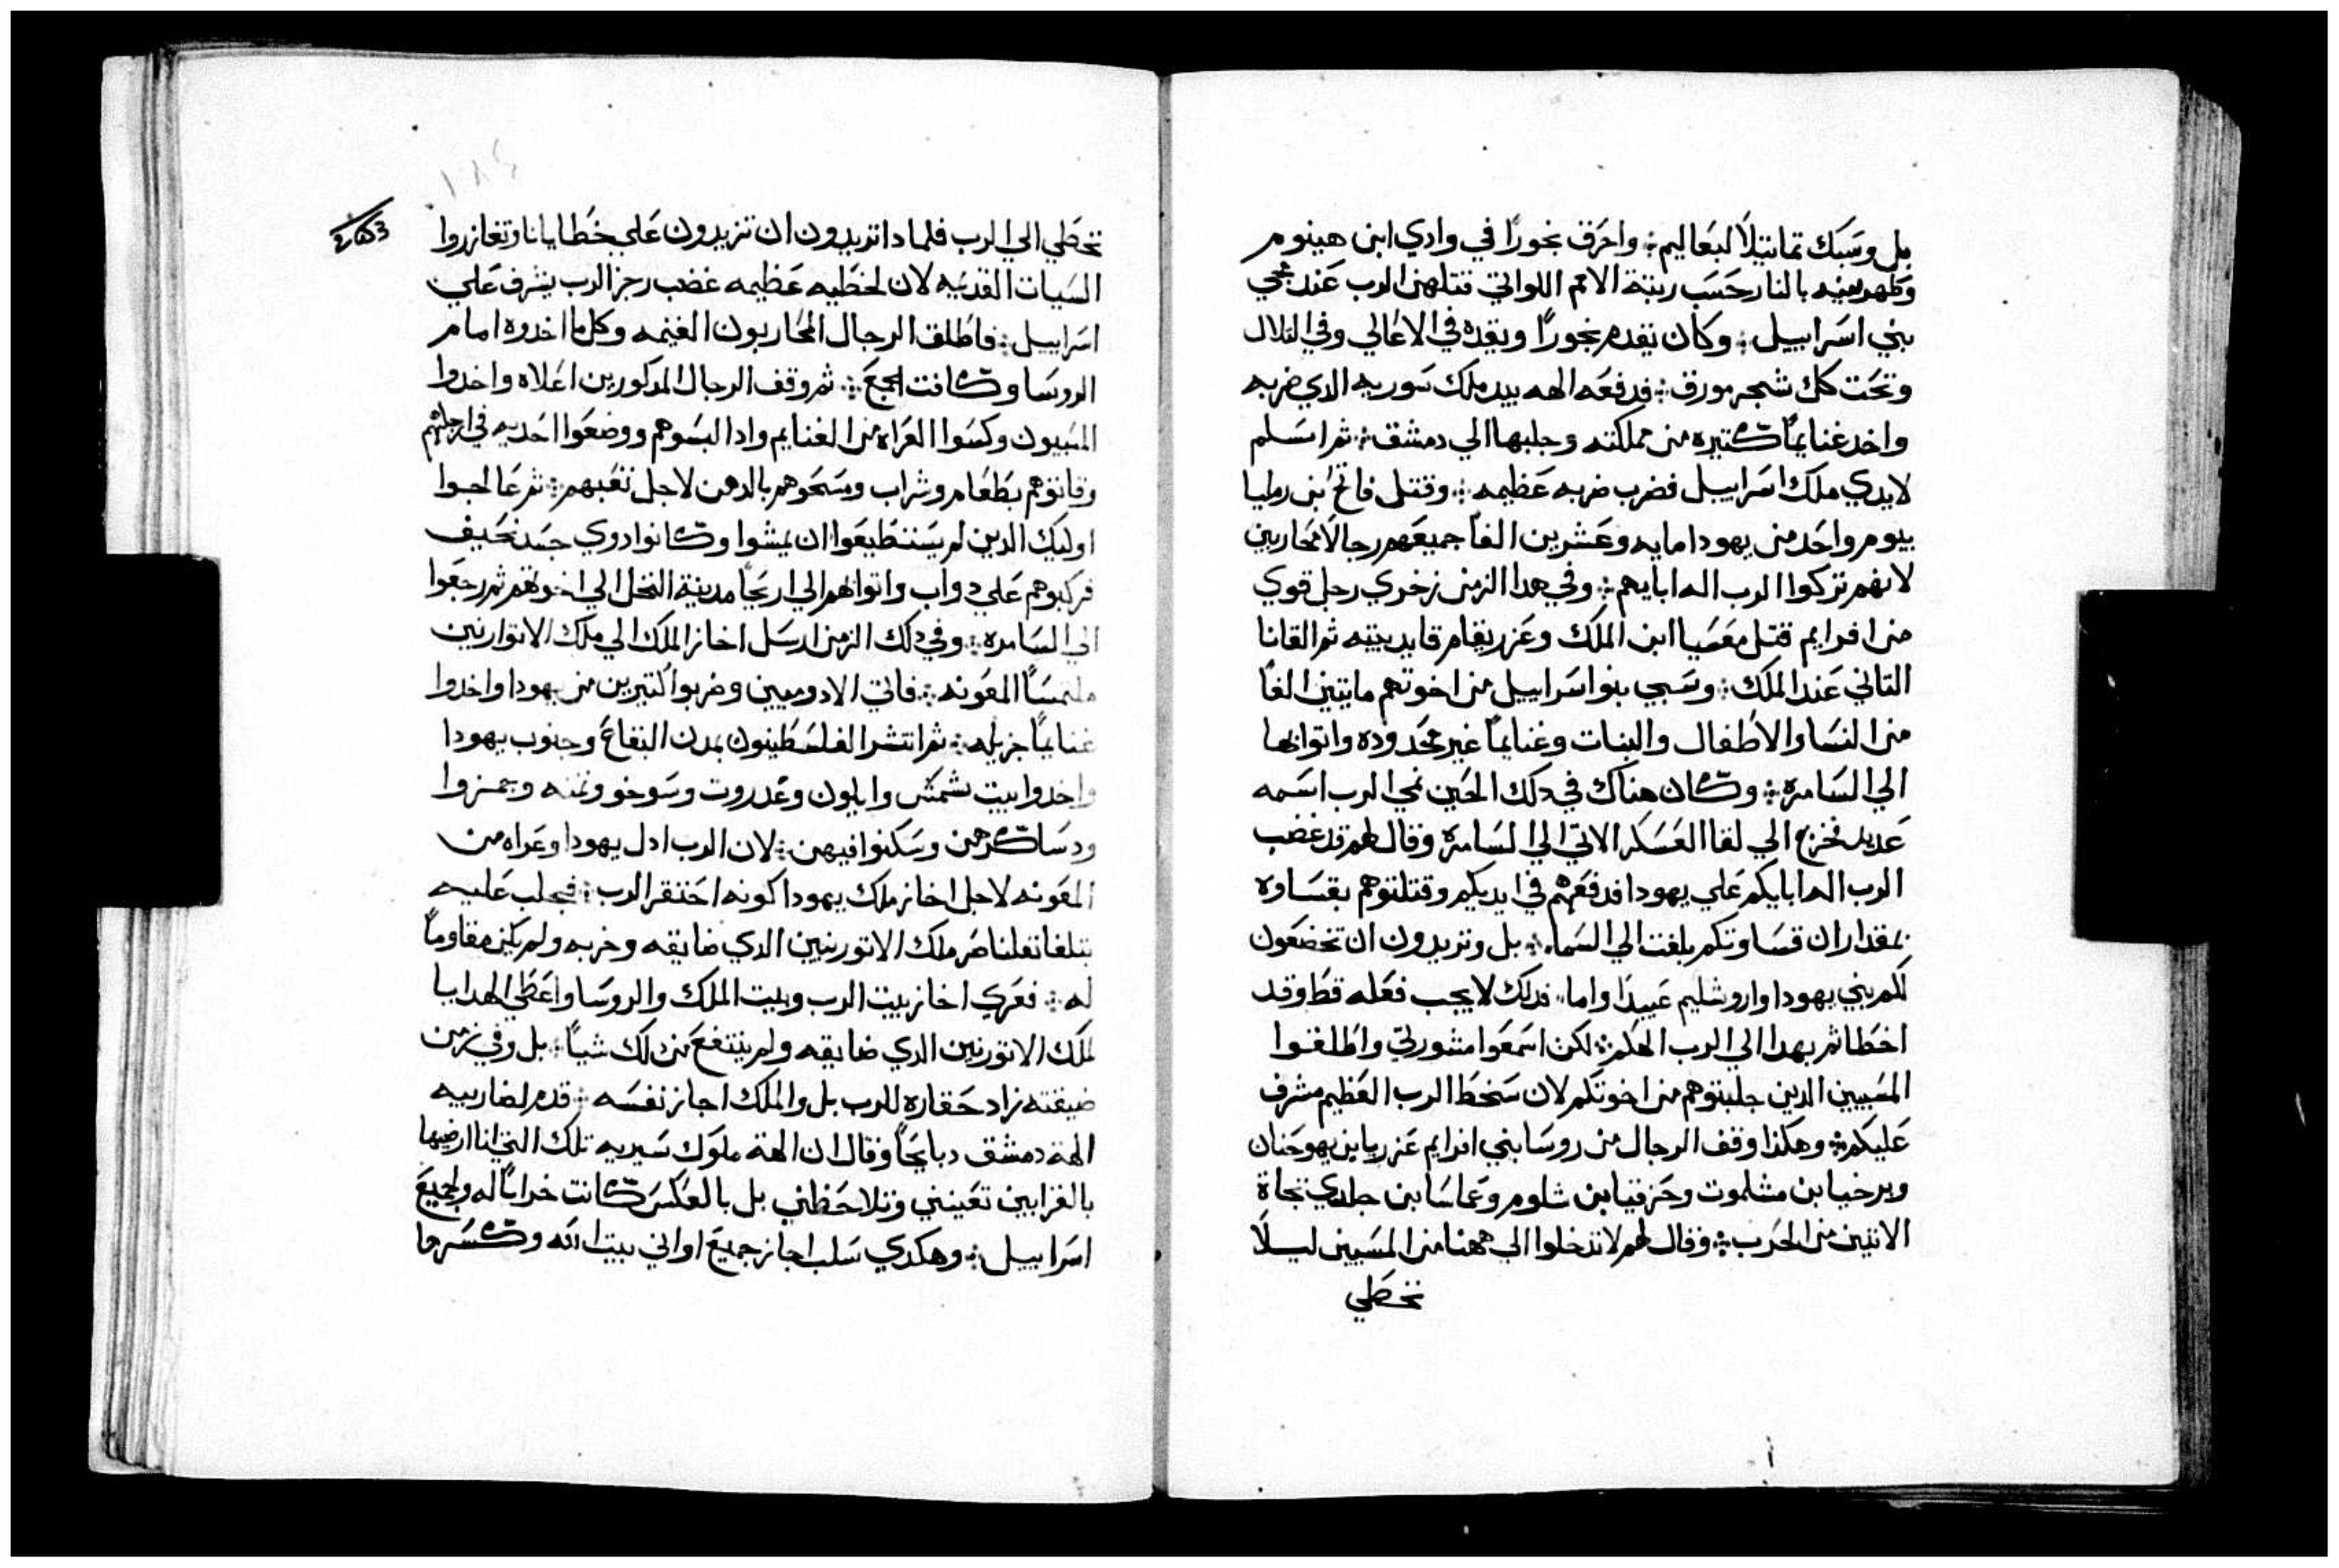 بل وسَبَك تماتيلاً لبعَاليم ⁘ واحرَق بخورًا في وادي ابن هينوم
وطهر بنيه بالنار حَسَب رتبة الامم اللواتي قتلهن الرب عَند مجي
بني اسَراييل ⁘ وكان يقدم بخورًا ويقده في الاعَالي وفي التلال
وتحَت كل شجر مورق ⁘ فدفعَه الهه بيد ملك سَوريه الدي ضربه
واخد غنايمًا كتيره من مملكته وجلبها الي دمشق ⁘ ثم اسَلم
لايدي ملك اسَراييل فضرب ضربه عَظيمه ⁘ وقتل فاقح ابن رمليا
بيوم واحَد من يهودا مايه وعَشرين الفًا جميعَهم رجالاً محَاربين
لانهم تركوا الرب اله ابايهم ⁘ وفي هدا الزمن زخري رجل قوي
من افرايم قتل معَسَيا ابن الملك وعَزريقام قايد بيته ثم القانا
التاني عَند الملك ⁘ وسَبي بنو اسَراييل من اخوتهم مايتين الفًا
من النسَا والاطفال والبنات وغنايمًا غير محَدوده واتوا بها
الي السَامرة ⁘ وكان هناك في دلك الحَين نبي الرب اسَمه
عَديد فخرج الي لقا العَسَكر الاتي الي السَامرة وقال لهم قد غضب
الرب اله ابايكم عَلي يهودا فدفعَهم في ايديكم وقتلتوهم بقسَاوه
بمقدار ان قسَاوتكم بلغت الي السَماء ⁘ بل وتريدون ان تخضعَون
لكم بني يهودا واروشليم عَبيدًا واما، فدلك لا يجب فعَله قط وقد
اخطاتم بهدا الي الرب الهكم ⁘ لكن اسَمعَوا مشورتي واطلقوا
المسَبيين الدين جلبتوهم من اخوتكم لان سَخط الرب العَظيم مشرف
عَليكم ⁘ وهكذا وقف الرجال من روسَا بني افرايم عَزريا بن يهوحَنان
وبرخيا بن مشلموت وحَزقيا بن شلوم وعَماسَا بن حلدي تجاة
الاتيين من الحَرب ⁘ وقال لهم لا تدخلوا الي ههنا من المسَبيين ليلاً
نخطي
نخطي الي الرب فلمادا تريدون ان تزيدون عَلي خطايانا وتغازروا
السَيات القدميه لان الخطيه عَظيمه غضب رجز الرب يشرف عَلي
اسَراييل ⁘ فاطلق الرجال المحَاربون الغنيمه وكل ما اخدوه امام
الروسَا وكانت الجمعَ ⁘ ثم وقف الرجال المدكورين اعَلاه واخدوا
المسَبيون وكسَوا العَراه من الغنايم وادا البسَوهم ووضعَوا احَديه في ارجلهم
وقاتوهم بطعَام وشراب ومسَحَوهم بالدهن لاجل تعَبهم ⁘ ثم عَالجوا
اوليك الدين لم يسَتطيعَوا ان يمشوا وكانوا دوي جسَد نحَيف
فركبوهم عَلي دواب واتوا بهم الي اريحَا مدينة النخل الي اخوتهم ثم رجعَوا
الي السَامره ⁘ وفي دلك الزمن ارسَل اخاز الملك الي ملك الاتوارنين
ملتمسًا المعَونه ⁘ فاتي الادوميين وضربوا كتيرين من يهودا واخدوا
غنايمًا جزيله ⁘ ثم انتشر الفلسَطينون بمدن البقاعَ وجنوب يهودا
واخدوا بيت شمش وايلون وعَدروت وسَوخو وتمنه وجمزوا
ودسَاكرهن وسَكنوا فيهن ⁘ لان الرب ادل يهودا وعَراه من
المعَونه لاجل اخاز ملك يهودا كونه احَتقر الرب ⁘ فجلب عَليه
بتلغاتفلناصر ملك الاتورنيين الدي ضايقه وخربه ولم يكن مقاومًا
له ⁘ فعَري اخاز بيت الرب وبيت الملك والروسَا واعَطي الهدايا
لملك الاتورنين الدي ضايقه ولم ينتفعَ من دلك شيًا ⁘ بل وفي زمن
ضيقته زاد حَقاره للرب بل والملك اجاز نفسَه ⁘ قدم لضاربيه
الهة دمشق دبايحًا وقال ان الهة ملوك سَيريه تلك التي انا ارضيها
بالقرابين تعَينني وتلاحَظني بل بالعَكسَ كانت خرابًا له ولجميعَ
اسَراييل ⁘ وهكدي سَلب اجاز جميعَ اواني بيت الله وكسَرها